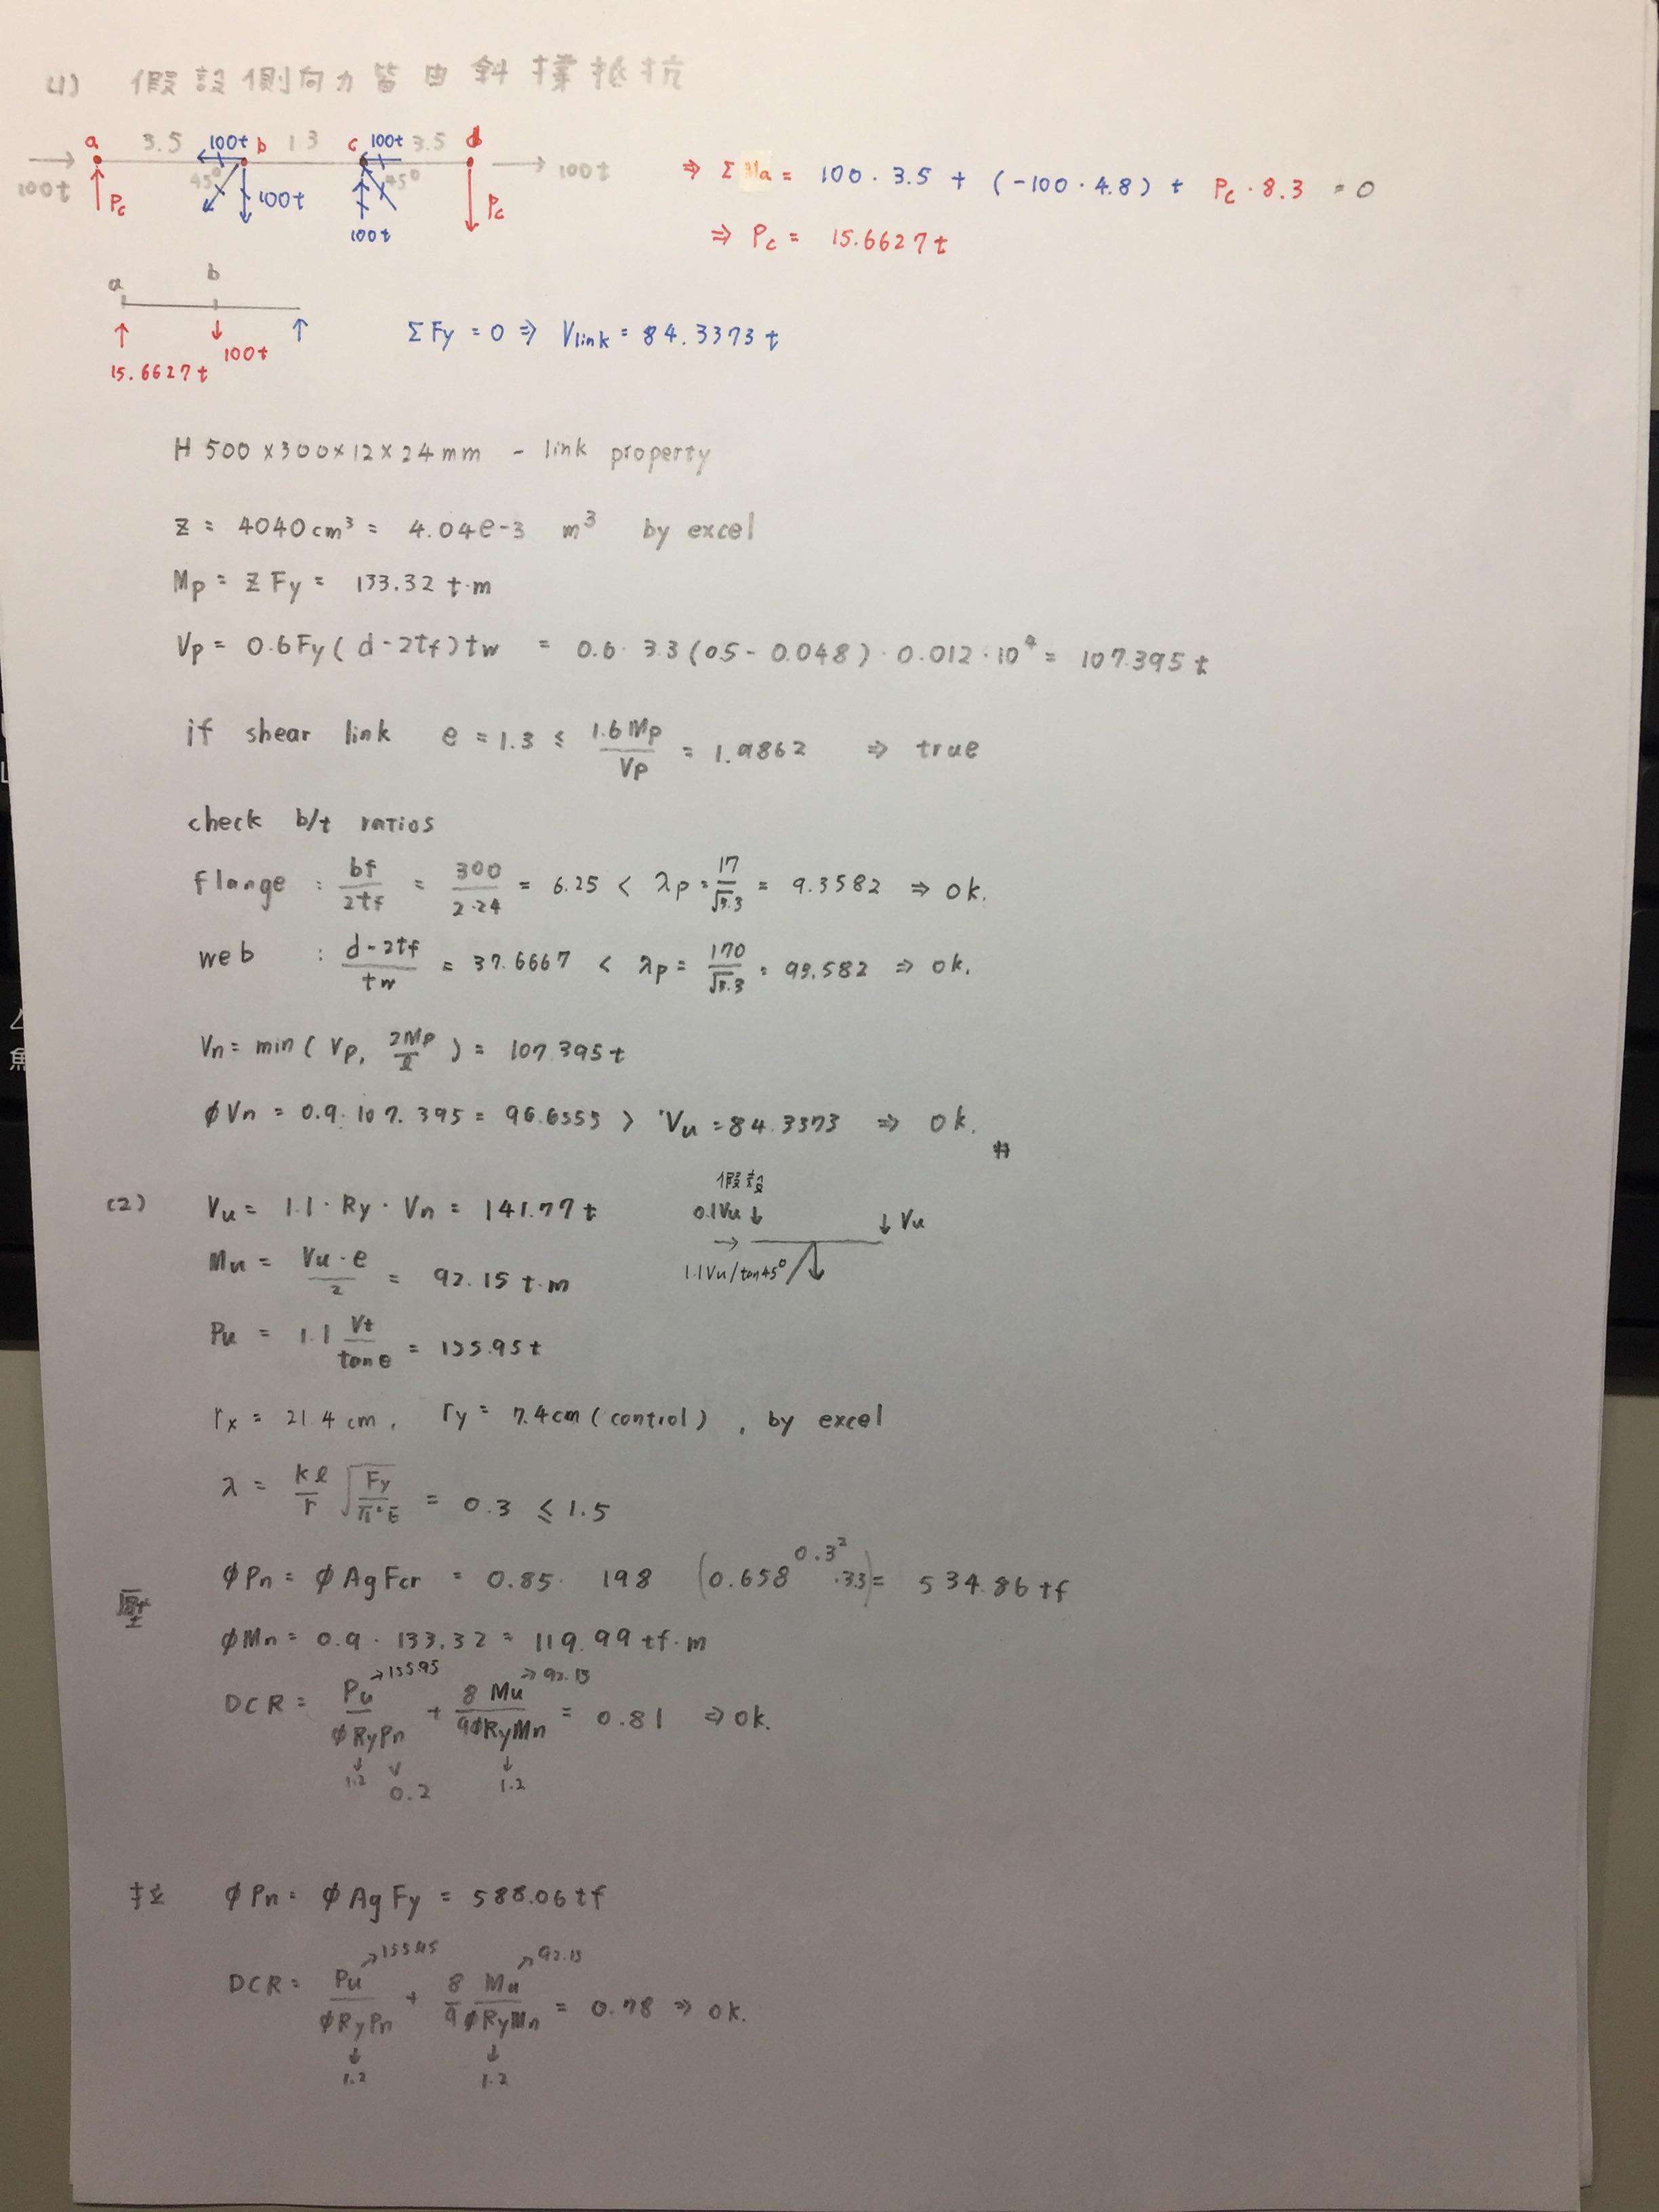 (1) 假設側向力皆由斜撐抵抗
a 3.5 100t b 1.3 c 100t 3.5 d
100t 45° 45° 100t
Pc 100t 100t Pc
⇒ Σ Ma = 100·3.5 + (-100·4.8) + Pc·8.3 = 0
⇒ Pc = 15.6627 t
a b
15.6627 t 100t
ΣFy = 0 ⇒ Vlink = 84.3373 t
H 500×300×12×24 mm - link property
Z = 4040 cm³ = 4.04e-3 m³ by excel
Mp = Z Fy = 133.32 t·m
Vp = 0.6Fy (d-2tf) tw = 0.6· 3.3 (0.5 - 0.048)·0.012·10⁴ = 107.395 t
if shear link e = 1.3 ≤ 1.6Mp/Vp = 1.9862 ⇒ true
check b/t ratios
flange : bf/2tf = 300/2·24 = 6.25 < λp = 17/√3.3 = 9.3582 ⇒ ok.
web : d-2tf/tw = 37.6667 < λp = 170/√3.3 = 93.582 ⇒ ok.
Vn = min ( Vp, 2Mp/ℓ ) = 107.395 t
φVn = 0.9·107.395 = 96.6555 > Vu = 84.3373 ⇒ ok. #
(2) Vu = 1.1·Ry·Vn = 141.77 t
假設
0.1Vu ↓ ↓ Vu
→ 1.1Vu/tan45°
Mu = Vu·e/2 = 92.15 t·m
Pu = 1.1 Vt/tanθ = 155.95 t
rx = 21.4 cm, ry = 7.4cm (control), by excel
λ = kℓ/r √Fy/π²E = 0.3 ≤ 1.5
壓 φPn = φAgFcr = 0.85· 198 (0.658^0.3² ·3.3) = 534.86 tf
φMn = 0.9·133.32 = 119.99 tf·m
DCR = Pu/φRyPn + 8 Mu/9φRyMn = 0.81 ⇒ ok.
→155.95 →92.15
1.2 0.2 1.2
拉 φPn = φAgFy = 588.06 tf
DCR = Pu/φRyPn + 8/9 Mu/φRyMn = 0.78 ⇒ ok.
→155.95 →92.15
1.2 1.2